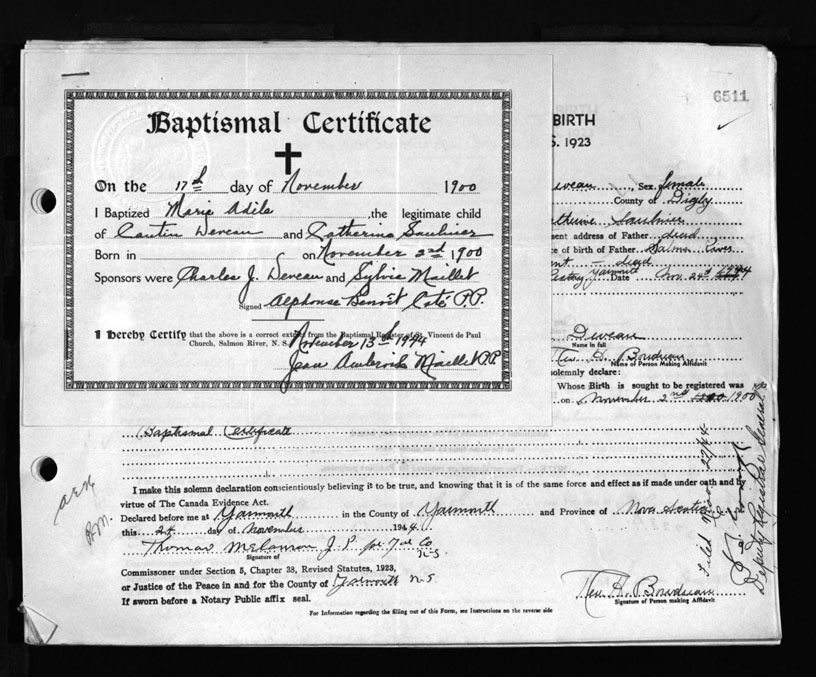 6511
Baptismal Certificate
On the 17th day of November 1900
I Baptized Marie Adile, the legitimate child
of Cantin Deveau and Catherine Saulnier
Born in on November 2nd 1900
Sponsors were Charles J. Deveau and Sylvie Maillet
Signed Alphonse Benoit Coté P.P.
I hereby Certify that the above is a correct extract from the Baptismal Register of St. Vincent de Paul
Church, Salmon River, N. S. November 13th 1944
Jean Ambroise Maillet P.P.
BIRTH
S. 1923
Deveau, Sex female
County of Digby
Catherine Saulnier
sent address of Father dead
ce of birth of Father Salmon River
dead
Yarmouth Date Nov 24th 1944
Deveau
Name in full
H. Boudreau
Name of Person Making Affidavit
solemnly declare:
Whose Birth is sought to be registered was
on November 2nd 1900
Baptismal Certificate
I make this solemn declaration conscientiously believing it to be true, and knowing that it is of the same force and effect as if made under oath and by
virtue of The Canada Evidence Act.
Declared before me at Yarmouth in the County of Yarmouth and Province of Nova Scotia
this 24 day of November 1944
Thomas Melanson J. P.
N-S.
Signature of
Commissoner under Section 5, Chapter 38, Revised Statutes, 1923,
or Justice of the Peace in and for the County of Yarmouth N-S
If sworn before a Notary Public affix seal.
H. Boudreau
Signature of Person making Affidavit
For Information regarding the filling out of this Form, see Instructions on the reverse side
Filed Nov. 27/44
Deputy Registrar General